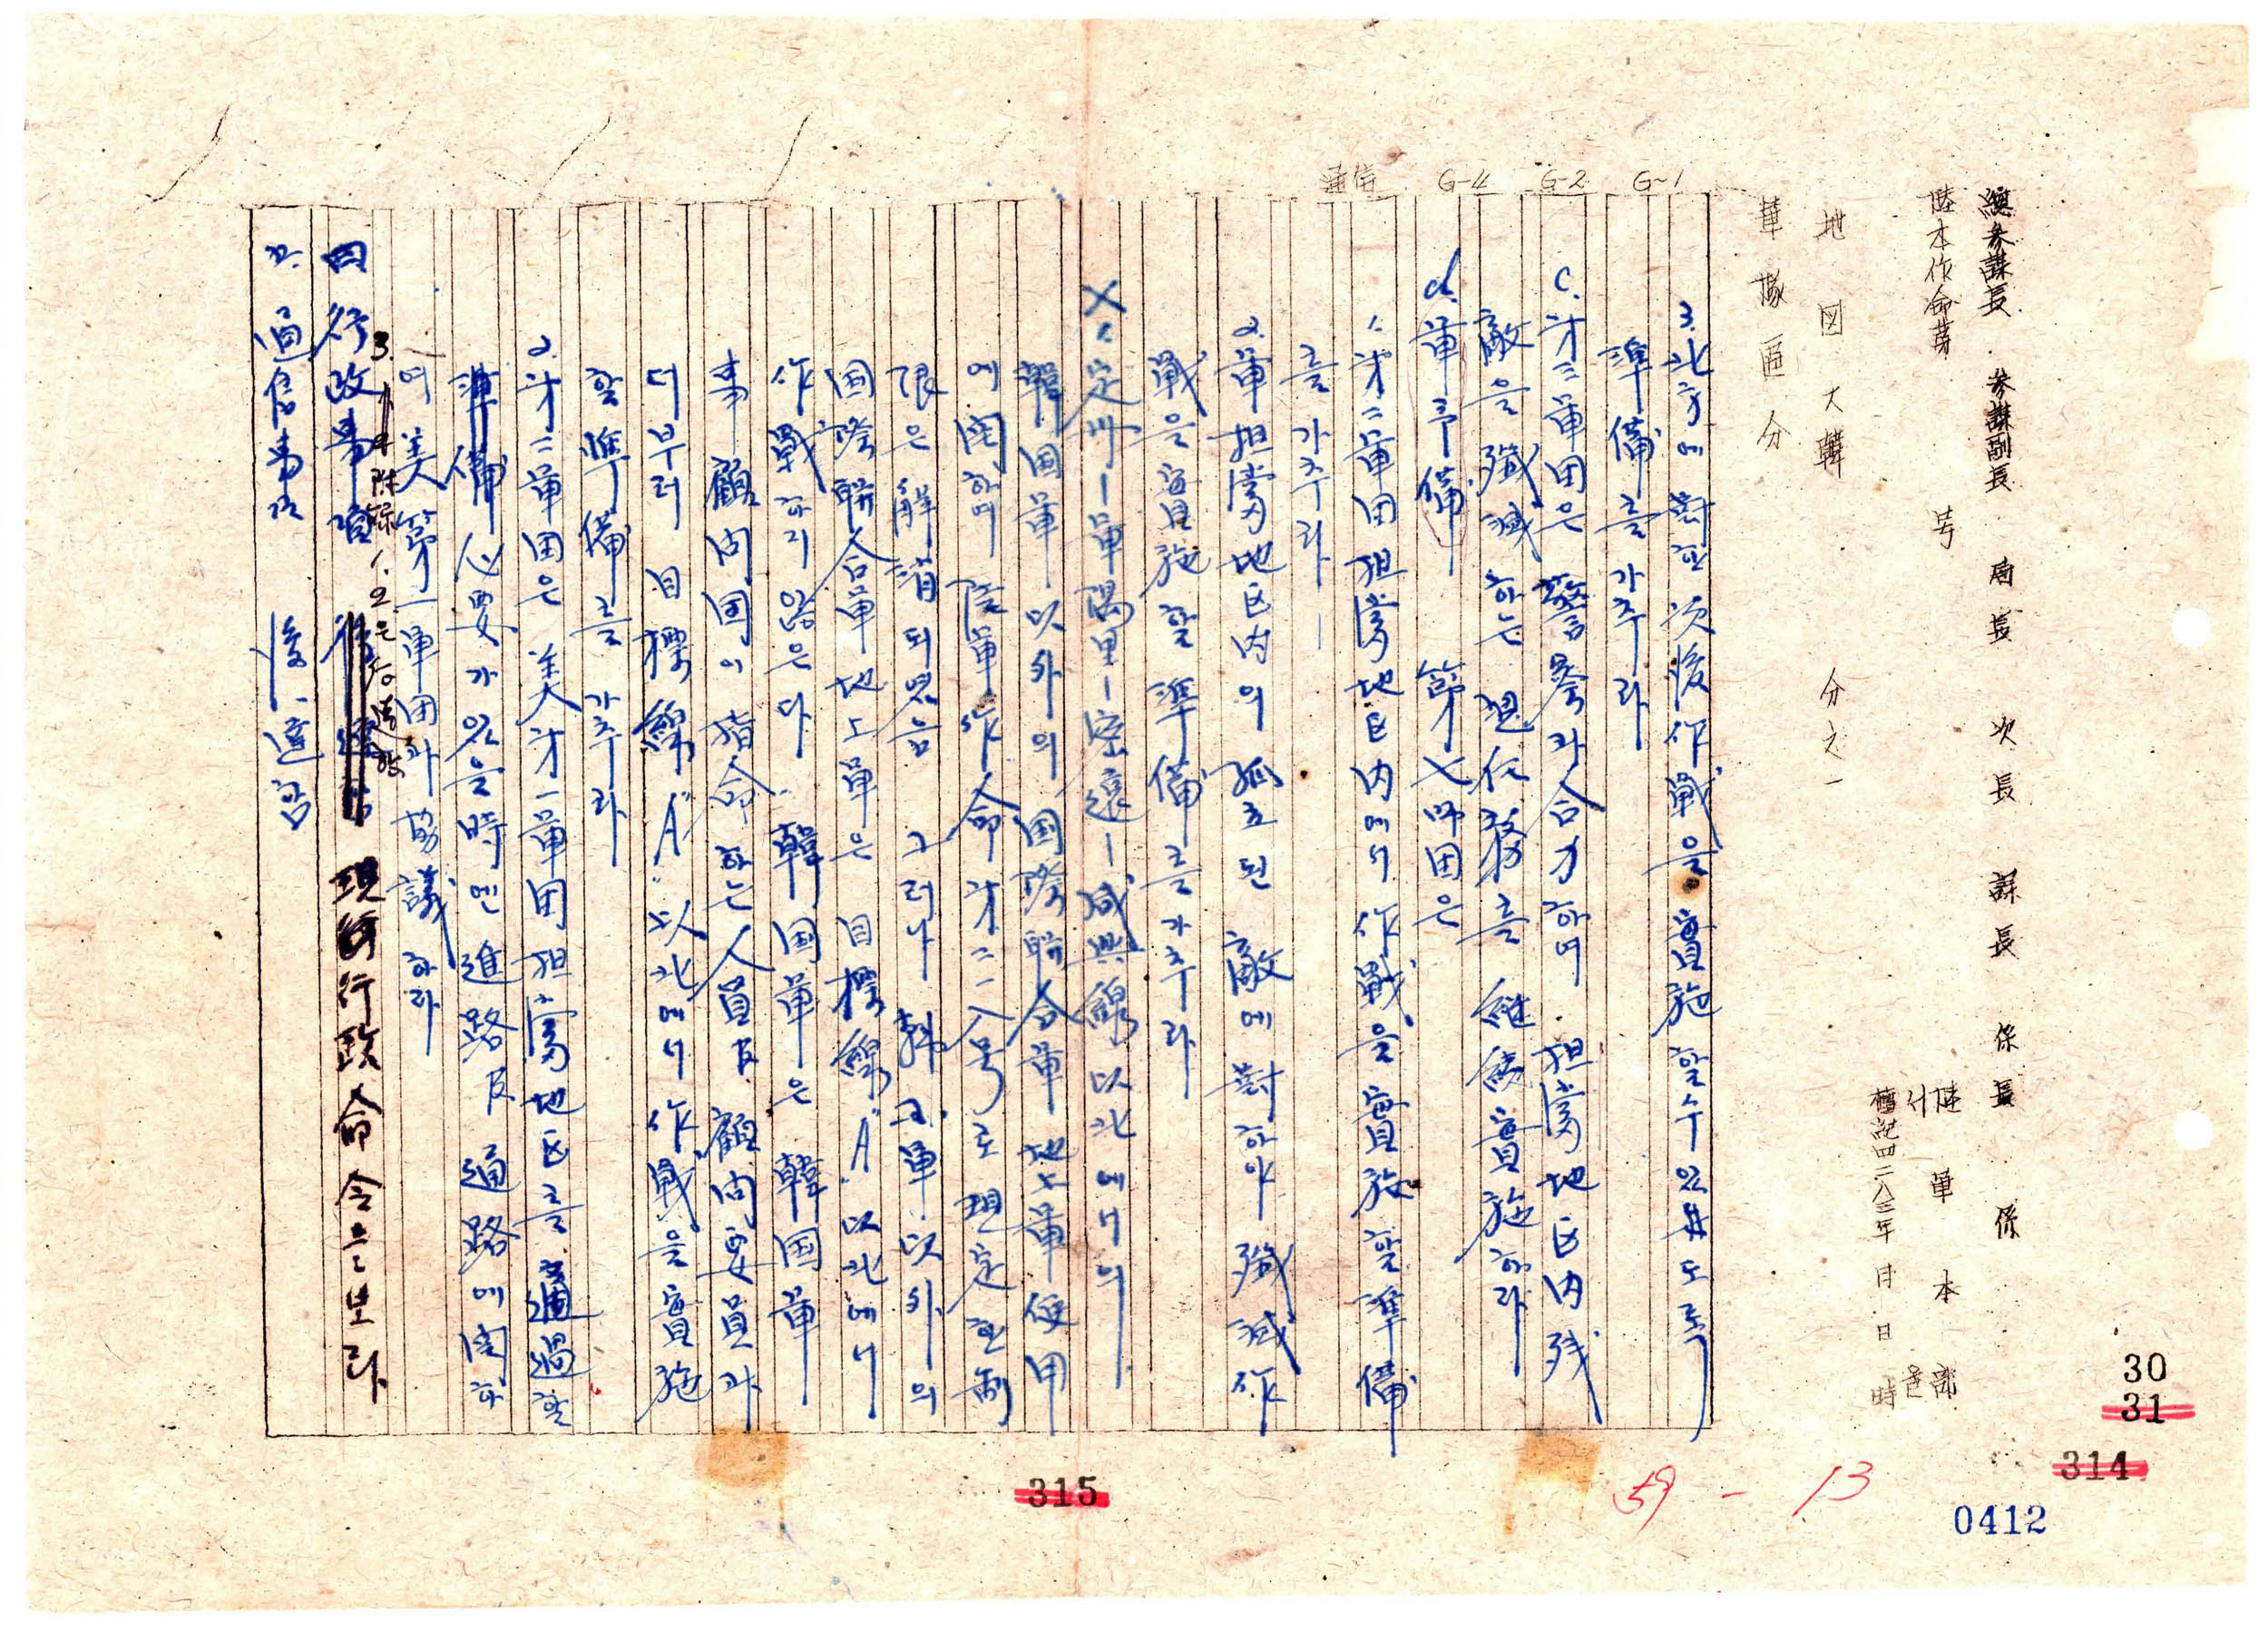 總參謀長 參謀副長 局長 次長 課長 係長 係
陸本作命第 号
陸軍本部
檀紀四二八三年 月 日 時
地図 大韓 分之一
軍隊區分
G-1
G-2
G-4
通信
3. 北方에 對한 次後作戰을 實施할 수 있도록
準備를 가추라
C. 第三軍団은 警察과 合力하여 担當地区内 残
敵을 殲滅하는 現任務를 継續 實施하라
d. 軍予備 第七師団은
1. 第二軍団担當地区内에서 作戰을 實施할 準備
를 가추라
2. 軍担當地区内의 孤立된 敵에 對하야 殲滅作
戰을 實施할 準備를 가추라
X. 定州–軍隅里–寧遠–咸興線 以北에서의
韓国軍 以外의 国際聯合軍 地上軍 使用
에 関하여 陸軍作命第二二八号로 規定한 制
限은 解消되였음 그러나 韓国軍 以外의
国際聯合軍 地上軍은 目標線 "A" 以北에서
作戰하지 않은다. 韓国軍은 韓国軍
事顧問団이 指命하는 人員及 顧問要員과
더부러 目標線 "A" 以北에서 作戰을 實施
할 準備를 가추라
2. 第二軍団은 美第一軍団担當地区를 通過할
準備 必要가 있을 時엔 進路及 通路에 関하
여 美 第一軍団과 協議하라
3. 附録 1. 2은 后送함
四 行政事項 現行行政命令을 보라
五. 通信事項 後達함
315
59 - 13
30
31
314
0412